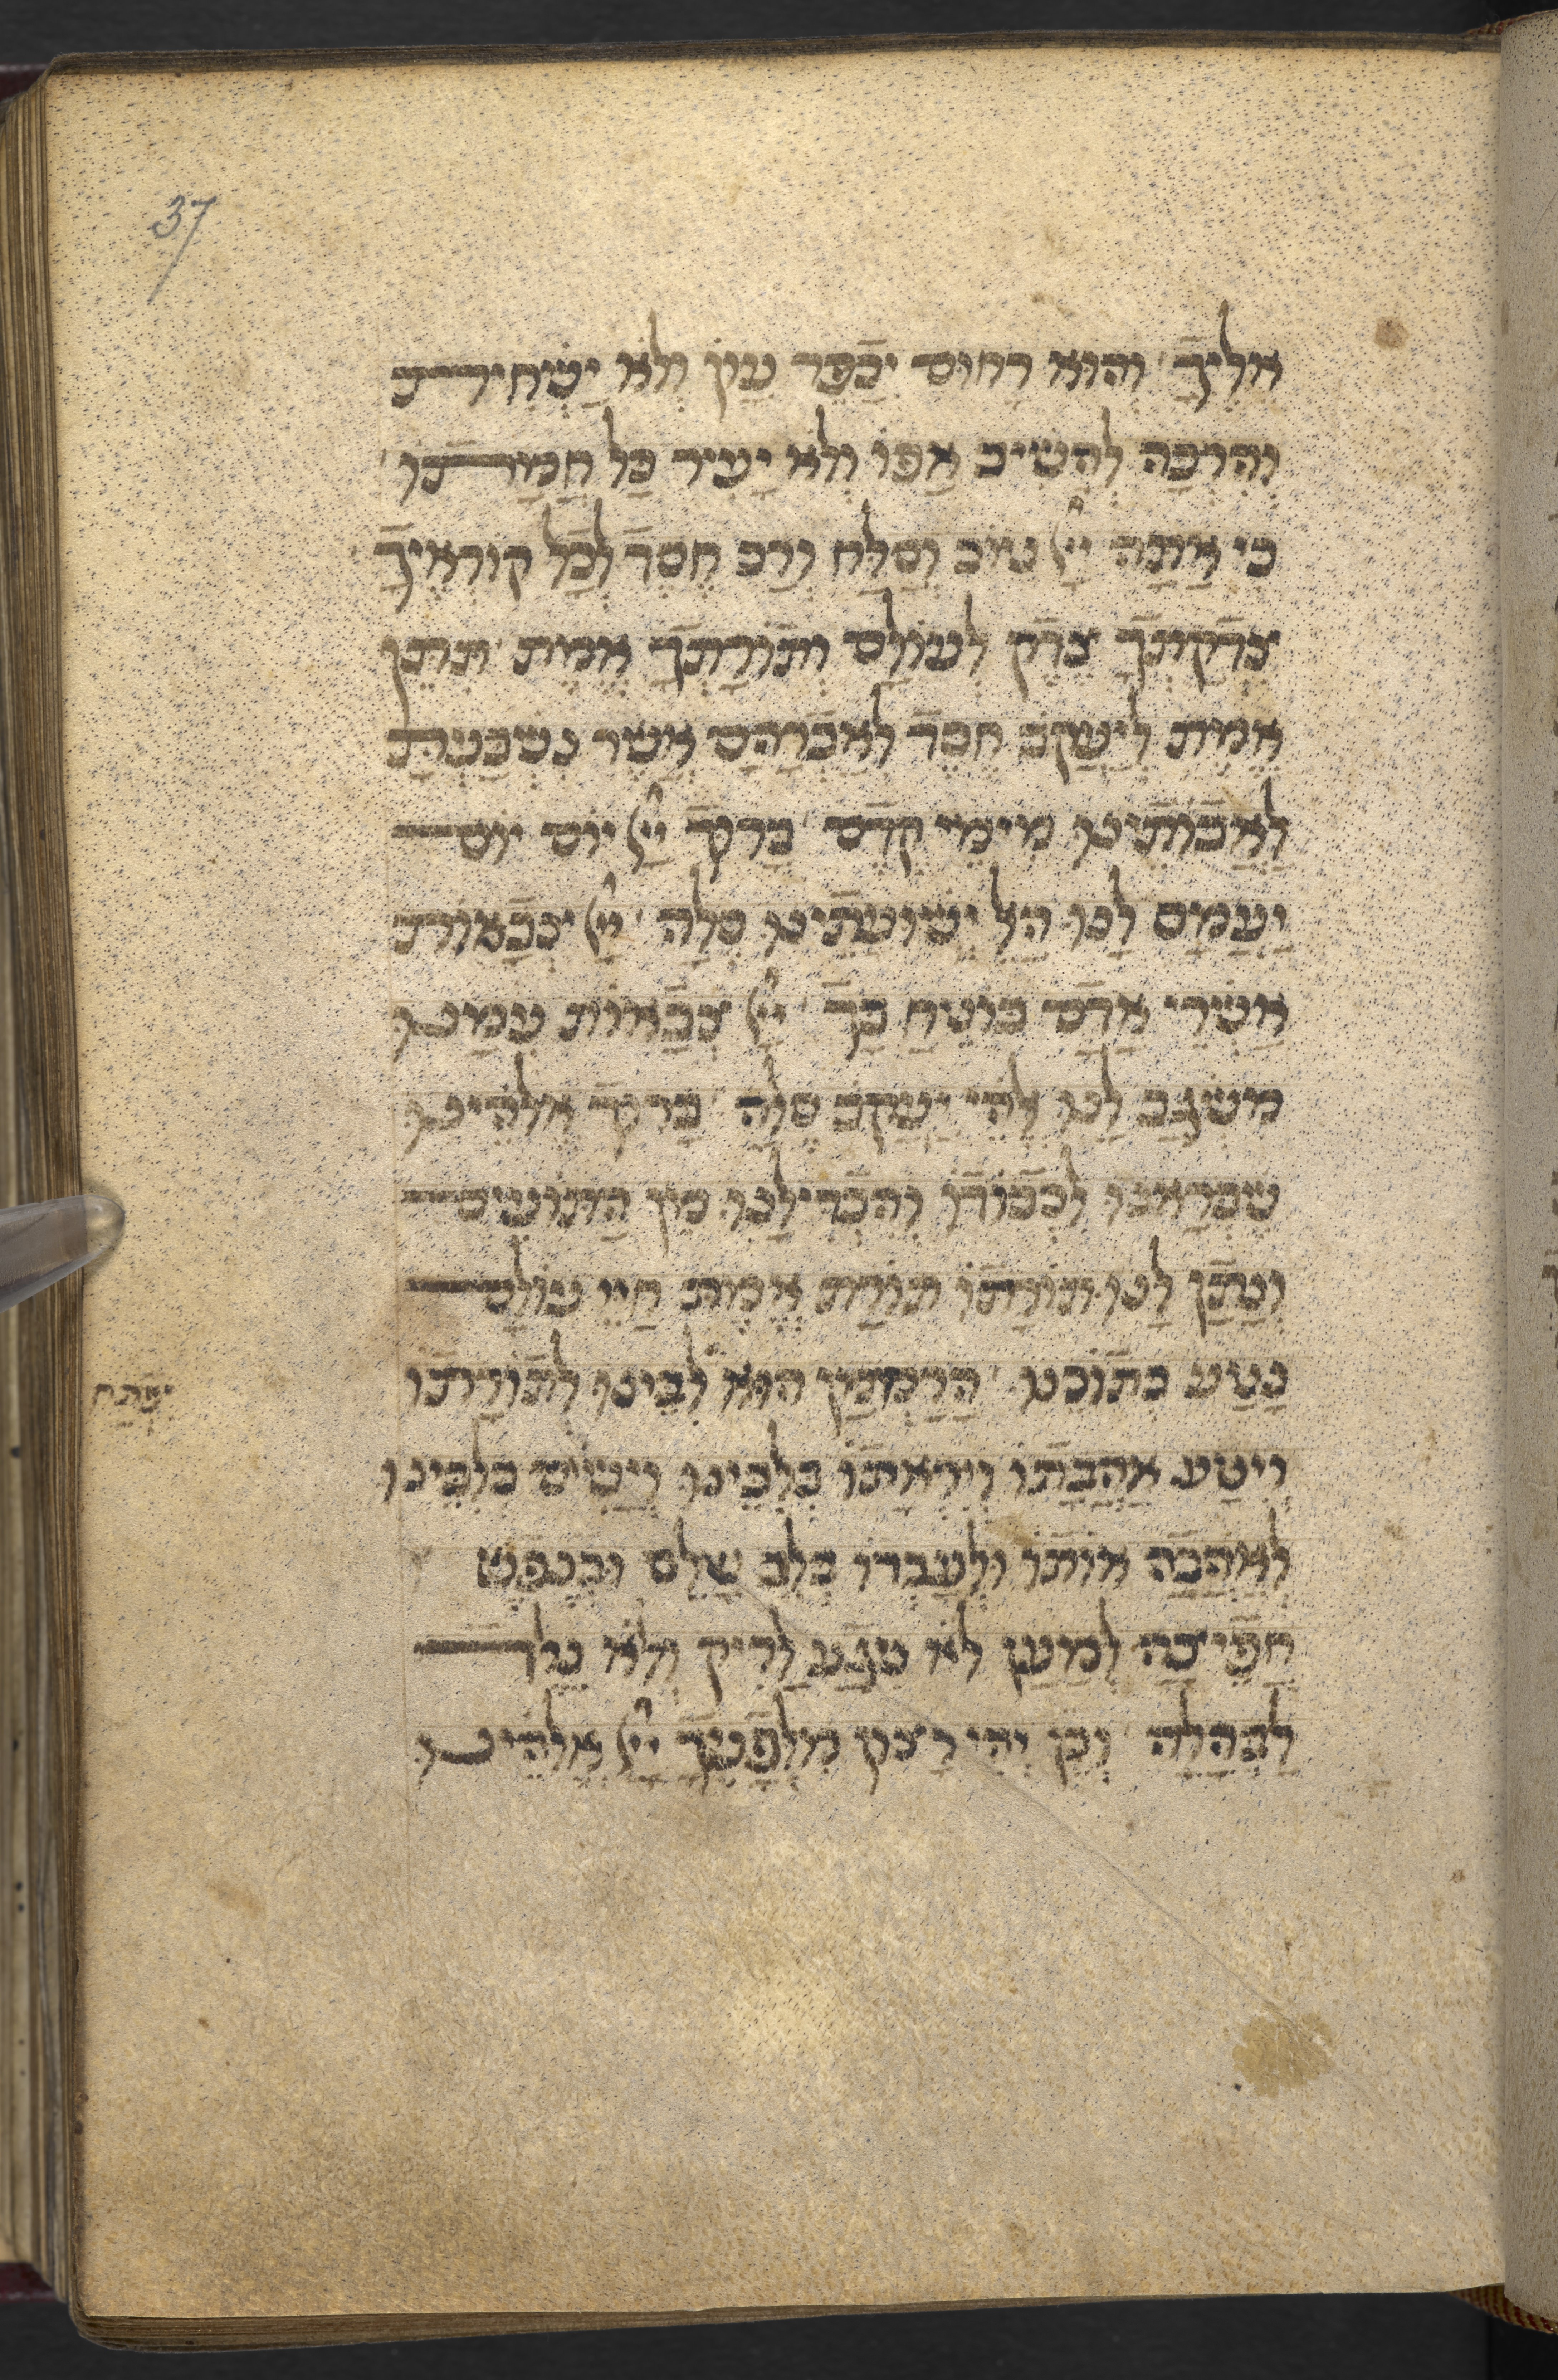 37
אֵלֶיךָ׳ וְהוּא רַחוּם יְכַפֵּר עָוֹן וְלֹא יַשְׁחִית
וְהִרְבָּה לְהָשִׁיב אַפּוֹ וְלֹא יָעִיר כָּל חֲמָתוֹ׳
כִּי אַתָּה יְיָ טוֹב וְסַלָּח וְרַב חֶסֶד לְכָל קוֹרְאֶיךָ׳
צִדְקָתְךָ צֶדֶק לְעוֹלָם וְתוֹרָתְךָ אֱמֶת׳ תִּתֵּן
אֱמֶת לְיַעֲקֹב חֶסֶד לְאַבְרָהָם אֲשֶׁר נִשְׁבַּעְתָּ
לַאֲבוֹתֵינוּ מִימֵי קֶדֶם׳ בָּרוּךְ יְיָ יוֹם יוֹם
יַעֲמָס לָנוּ הָאֵל יְשׁוּעָתֵינוּ סֶלָה׳ יְיָ צְבָאוֹת
אַשְׁרֵי אָדָם בּוֹטֵחַ בָּךְ׳ יְיָ צְבָאוֹת עִמָּנוּ
מִשְׂגָּב לָנוּ אֱלֹהֵי יַעֲקֹב סֶלָה׳ בָּרוּךְ אֱלֹהֵינוּ
שֶׁבְּרָאָנוּ לִכְבוֹדוֹ וְהִבְדִּילָנוּ מִן הַתּוֹעִים
וְנָתַן לָנוּ תּוֹרָתוֹ תּוֹרַת אֱמֶת חַיֵּי עוֹלָם
נָטַע בְּתוֹכֵנוּ׳ הָרַחֲמָן הוּא לִבֵּינוּ לְתוֹרָתוֹ
יִפְתַּח
וְיִטַּע אַהֲבָתוֹ וְיִרְאָתוֹ בְּלִבֵּינוּ וְיָשִׂים בְּלִבֵּינוּ
לְאַהֲבָה אוֹתוֹ וּלְעָבְדוֹ בְּלֵב שָׁלֵם וּבְנֶפֶשׁ
חֲפֵיצָה לְמַעַן לֹא נִגַּע לָרִיק וְלֹא נֵלֵד
לַבֶּהָלָה׳ וְכֵן יְהִי רָצוֹן מִלְּפָנֶיךָ יְיָ אֱלֹהֵינוּ